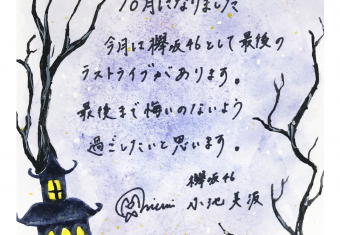 10月になりました
今月は欅坂46として最後の
ラストライブがあります。
最後まで悔いのないよう
過ごしたいと思います。
欅坂46
小池美波